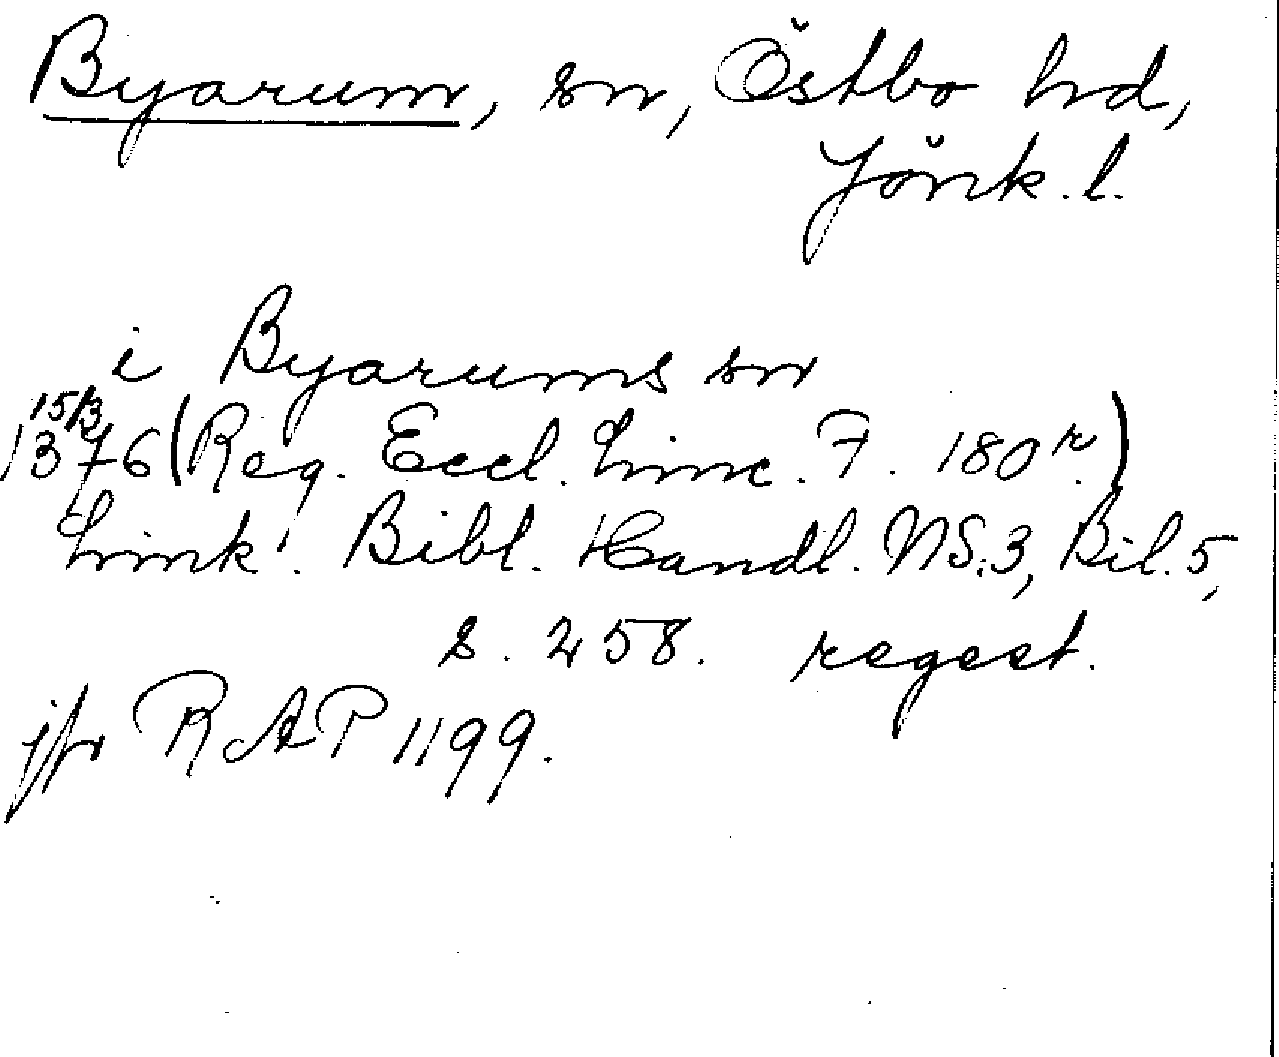 Byarum, sn, Östbo hd,
Jönk. l.
i Byarums sn
15/3
1376 (Reg. Eccl. Linc. F. 180 r.)
Link. Bibl. Handl. NS. 3, Bil. 5,
s. 258. regest.
jfr RAP 1199.